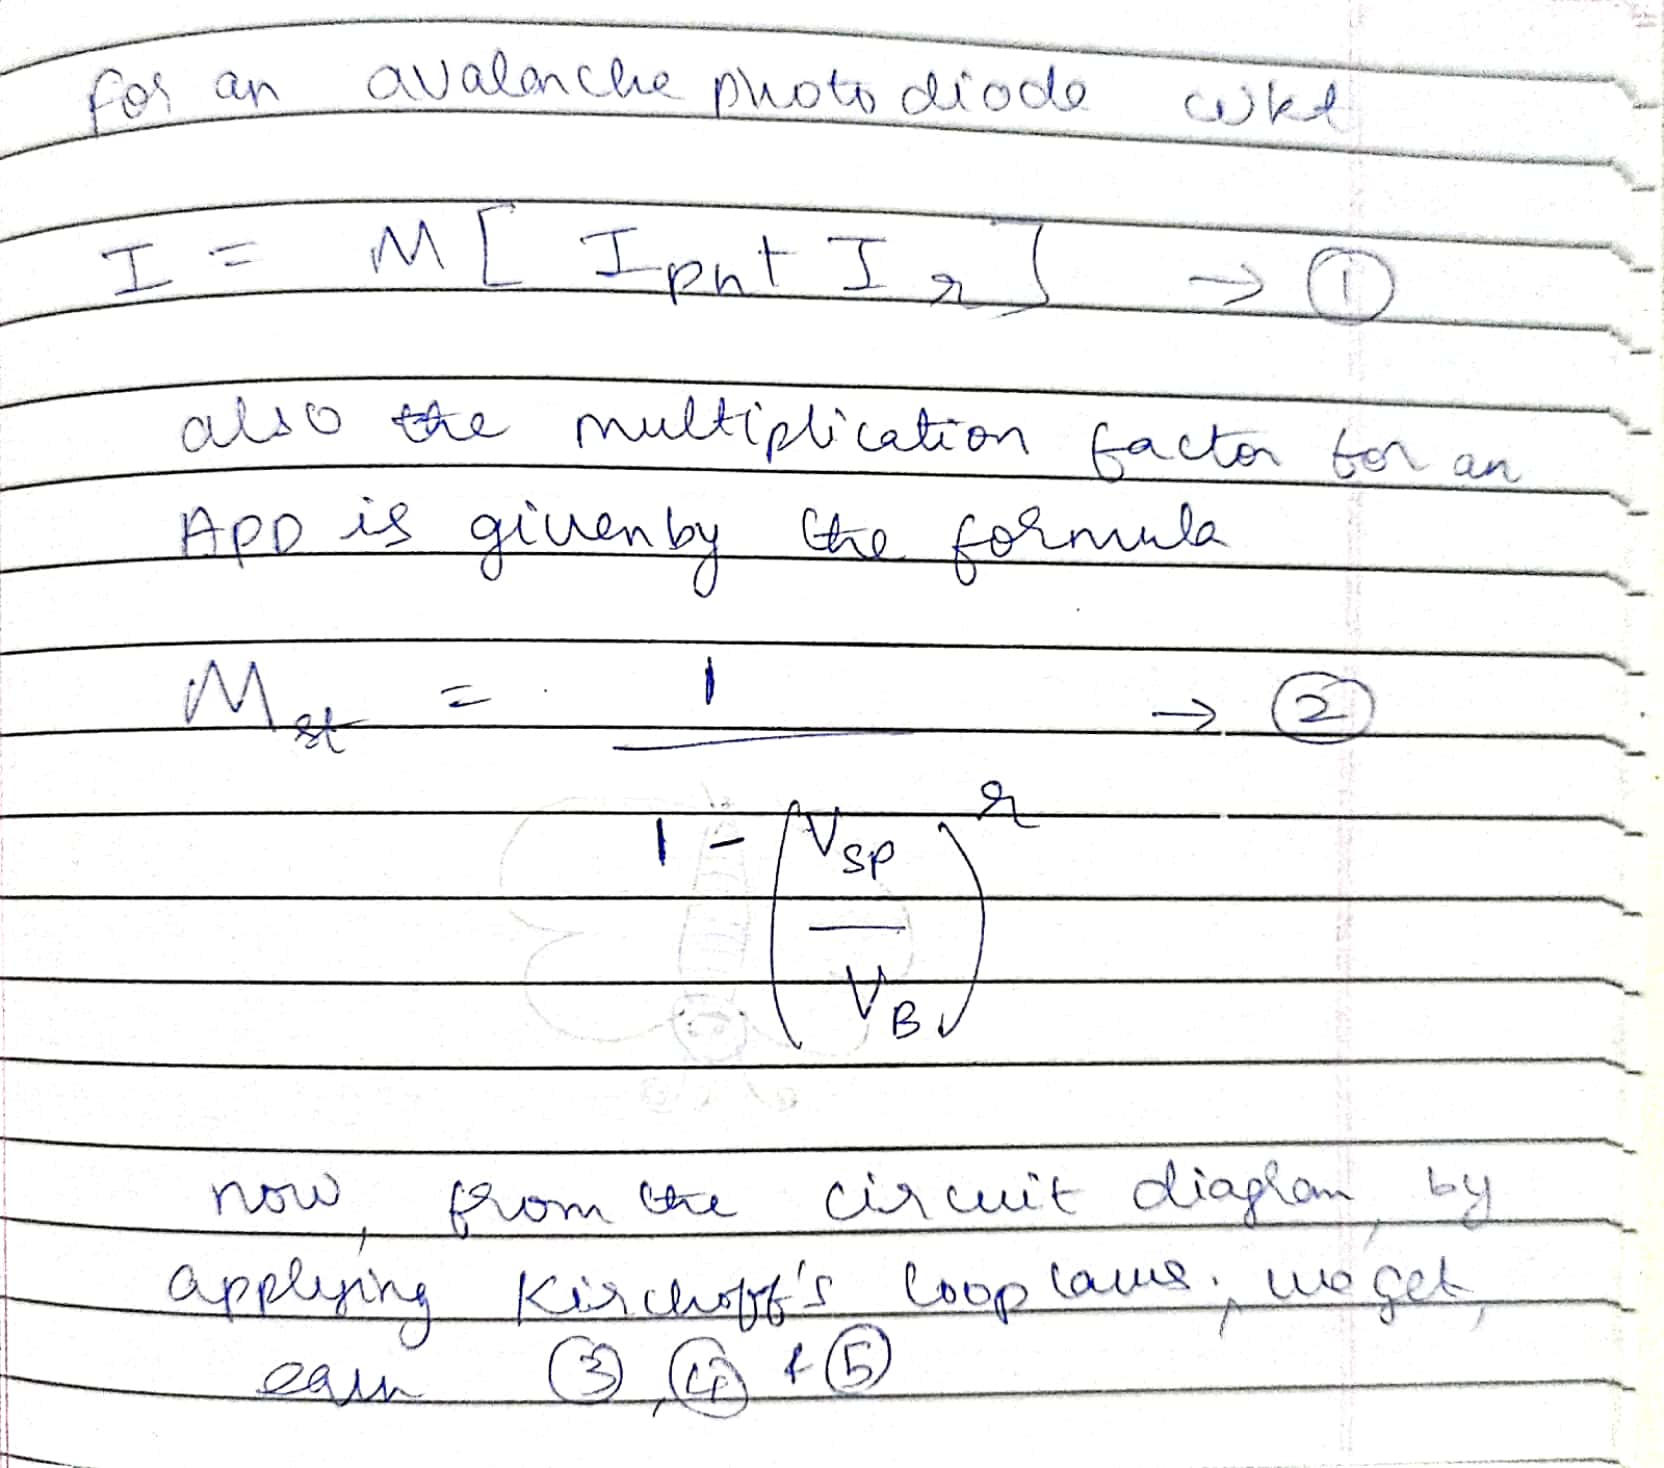 for an avalanche photo diode wkt
I = M [ Iph + Ir ] → ①
also the multiplication factor for an
APD is given by the formula
Mst = 1 → ②
1 - (VSP / VB)^r
now, from the circuit diagram, by
applying Kirchoff's loop laws, we get,
eqn ③, ④ & ⑤